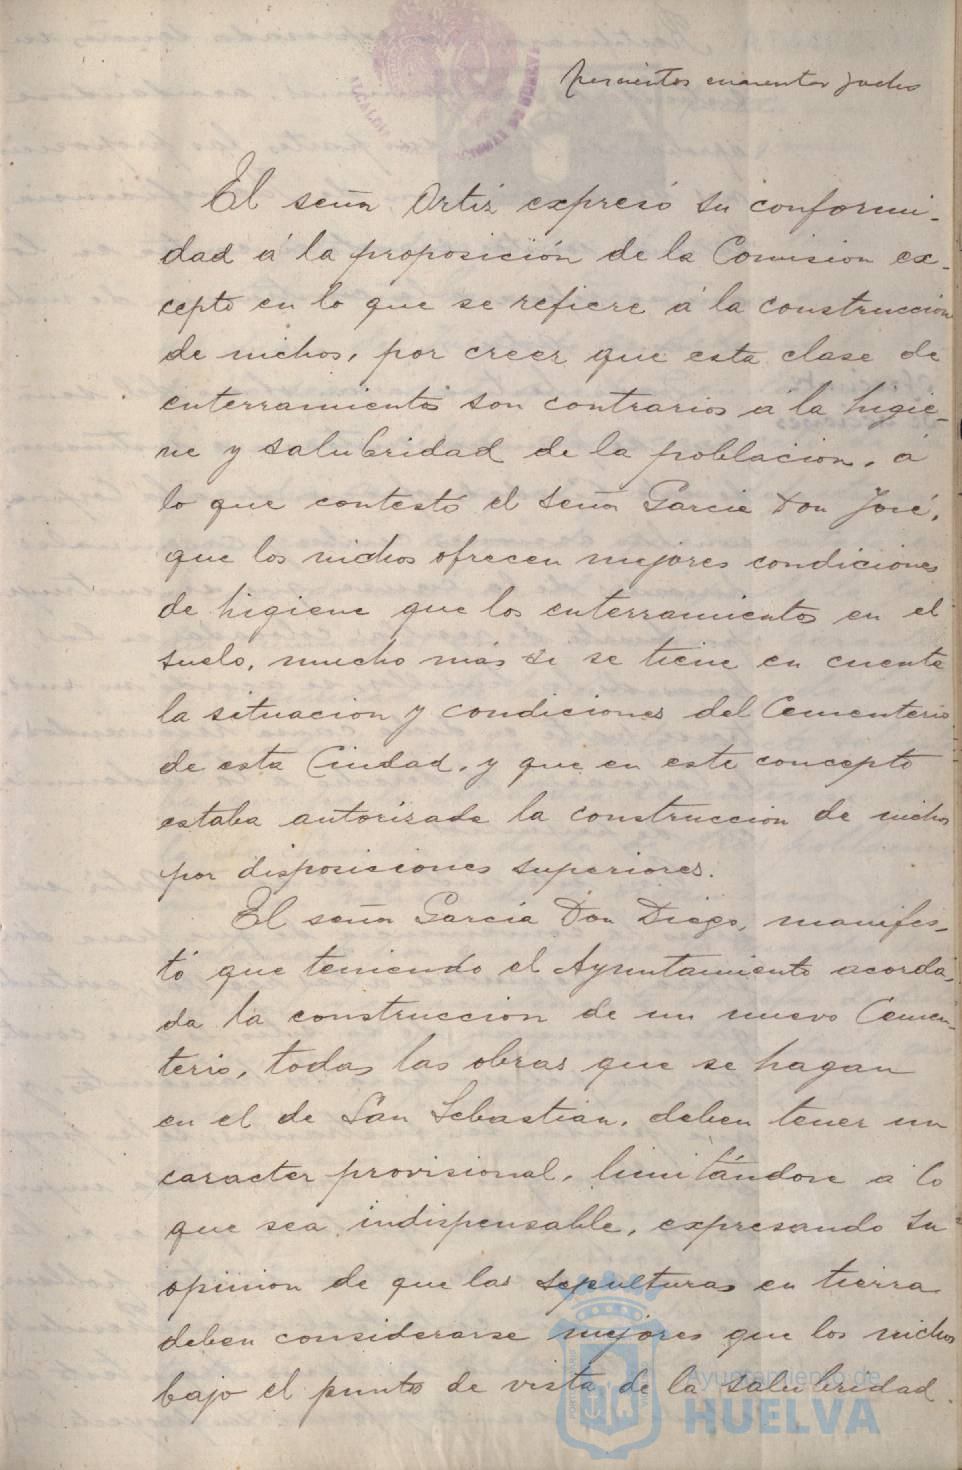 cuarenta y ocho
El señor Ortiz expresó su conformi-
dad á la proposición de la Comision ex-
cepto en lo que se refiere á la construccion
de nichos, por creer que esta clase de
enterramientos son contrarios á la higie-
ne y salubridad de la poblacion, á
lo que contestó el señor Garcia Don José,
que los nichos ofrecen mejores condiciones
de higiene que los enterramientos en el
suelo, mucho más si se tiene en cuenta
la situacion y condiciones del Cementerio
de esta Ciudad, y que en este concepto
estaba autorizada la construccion de nichos
por disposiciones superiores.
El señor Garcia Don Diego, manifes-
tó que teniendo el Ayuntamiento acorda-
da la construccion de un nuevo Cemen-
terio, todas las obras que se hagan
en el de San Sebastian, deben tener un
caracter provisional, limitándose a lo
que sea indispensable, expresando su
opinion de que las sepulturas en tierra
deben considerarse mejores que los nichos
bajo el punto de vista de la salubridad.
Ayuntamiento de
HUELVA